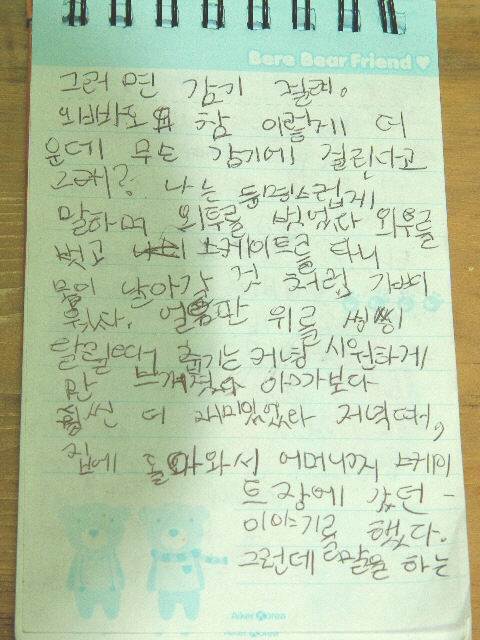 Bere Bear Friend
그러면 감기 걸려.
외빠도 참 이렇게 더
운데 무슨 감기에 걸린다고
그래? 나는 퉁명스럽게
말하며 외투를 벗었다 외투를
벗고 스케이트를 타니
몸이 날아갈 것 처럼 가벼
웠다. 얼음판 위를 씽씽
달릴때 춥기는커녕 시원하게
만 느껴졌다 아까보다
훨씬 더 재미있었다 저녁때,
집에 돌아와서 어머니께 스케이
트장에 갔던
이야기를 했다.
그런데 말을 하는
Aiker Korea